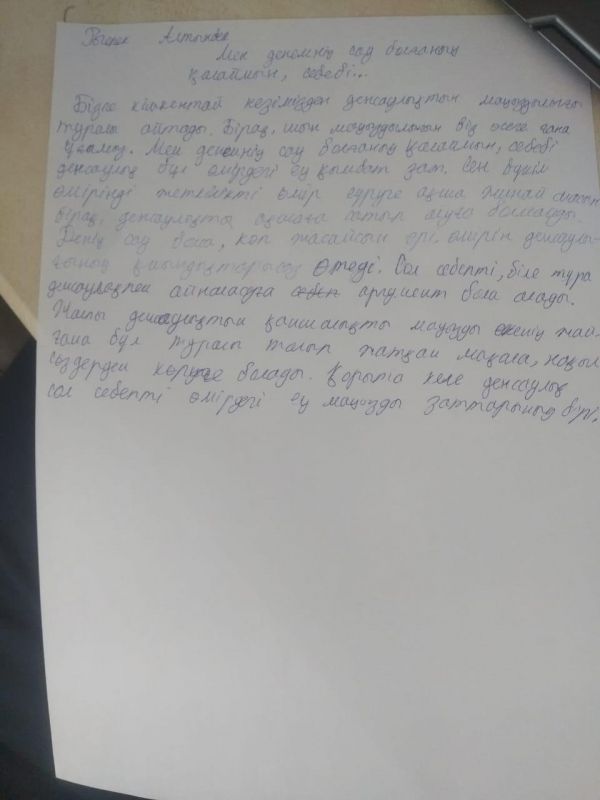 Мен денемнің сау болғанын
қалаймын, себебі...
Бізге кішкентай кезімізден денсаулықтың маңыздылығы
туралы айтады. Бірақ, шын маңыздылығын біз өсе ғана
ұғамыз. Мен денемнің сау болғанын қалаймын, себебі
денсаулық бұл өмірдегі ең қымбат зат. Сен бүкіл
өміріңді жеткілікті өмір сүруге ақша жинай аласың
бірақ, денсаулықты ақшаға сатып алуға болмайды.
Денің сау болса, көп жасайсын әрі өмірің денсаулы-
ғының қиындықтарысыз өтеді. Сол себепті, біле тұра
денсаулықпен айналаспа себеп аргумент бола алады.
Жалпы денсаулықтың қаншалықты маңызды екенің жай-
ғана бұл туралы толып жатқан мақала, нақыл
сөздерден көруге болады. Қорыта келе денсаулық
сол себепті өмірдегі ең маңызды заттарының бірі.